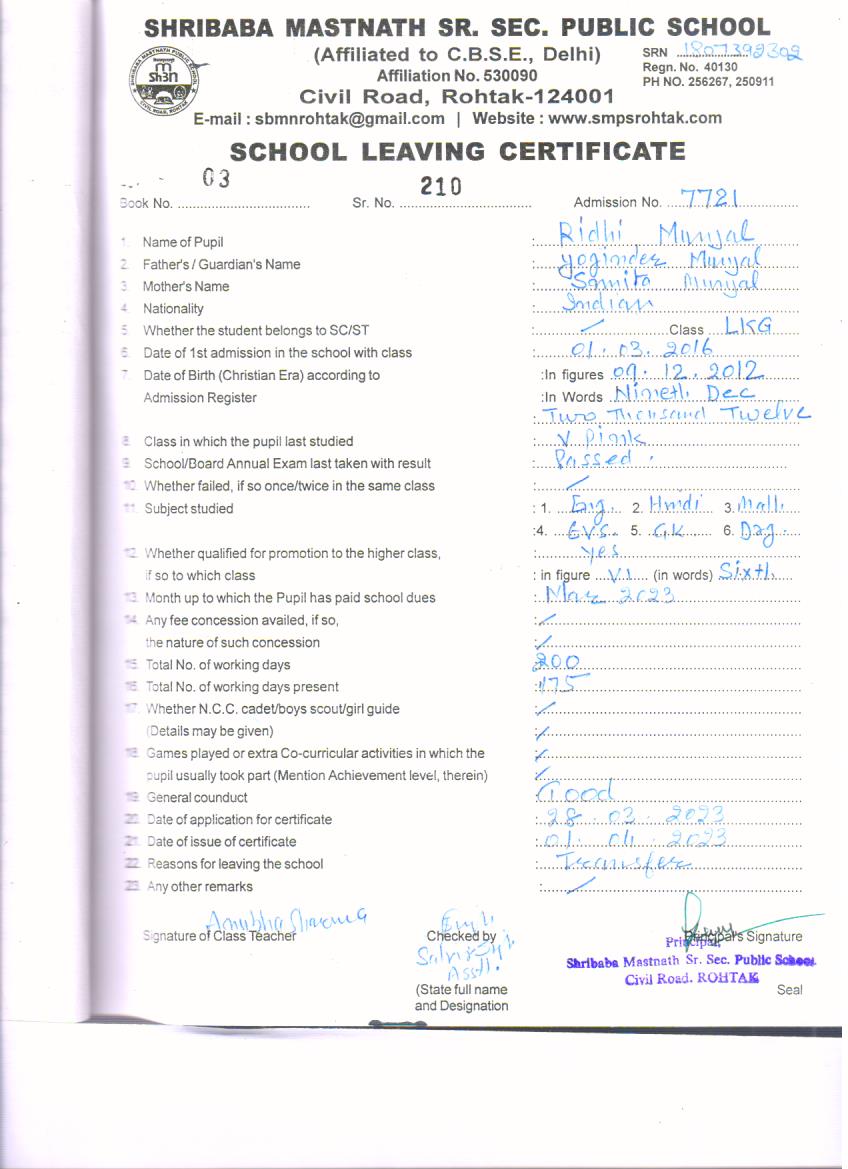 SHRIBABA MASTNATH SR. SEC. PUBLIC SCHOOL
(Affiliated to C.B.S.E., Delhi)
Affiliation No. 530090
Civil Road, Rohtak-124001
SRN 1807392302
Regn. No. 40130
PH NO. 256267, 250911
E-mail : sbmnrohtak@gmail.com | Website : www.smpsrohtak.com
SCHOOL LEAVING CERTIFICATE
Book No. 03 Sr. No. 210 Admission No. 7721
1. Name of Pupil : Ridhi Munjal
2. Father's / Guardian's Name : Yoginder Munjal
3. Mother's Name : Munjal
4. Nationality : Indian
5. Whether the student belongs to SC/ST : / Class LKG
6. Date of 1st admission in the school with class : 01. 03. 2016
7. Date of Birth (Christian Era) according to :In figures 09. 12. 2012
Admission Register :In Words Nineth Dec
: Two Thousand Twelve
8. Class in which the pupil last studied : V Pink
9. School/Board Annual Exam last taken with result : Passed .
10. Whether failed, if so once/twice in the same class : /
11. Subject studied : 1. Eng. 2. Hindi 3. Math
:4. E.V.S. 5. G.K 6. Dag.
12. Whether qualified for promotion to the higher class, : yes
if so to which class : in figure VI (in words) Sixth
13. Month up to which the Pupil has paid school dues : Mar 2023
14. Any fee concession availed, if so, : /
the nature of such concession : /
15. Total No. of working days : 200
16. Total No. of working days present : 175
17. Whether N.C.C. cadet/boys scout/girl guide : /
(Details may be given) : /
18. Games played or extra Co-curricular activities in which the : /
pupil usually took part (Mention Achievement level, therein) : /
19. General counduct : Good
20. Date of application for certificate : 28. 03. 2023
21. Date of issue of certificate : 01. 04. 2023
22. Reasons for leaving the school : Transfer
23. Any other remarks : /
Anubha Sharma
Signature of Class Teacher
Checked by
Asstt.
(State full name
and Designation
Principal's Signature
Principal,
Shribaba Mastnath Sr. Sec. Public School
Civil Road. ROHTAK
Seal